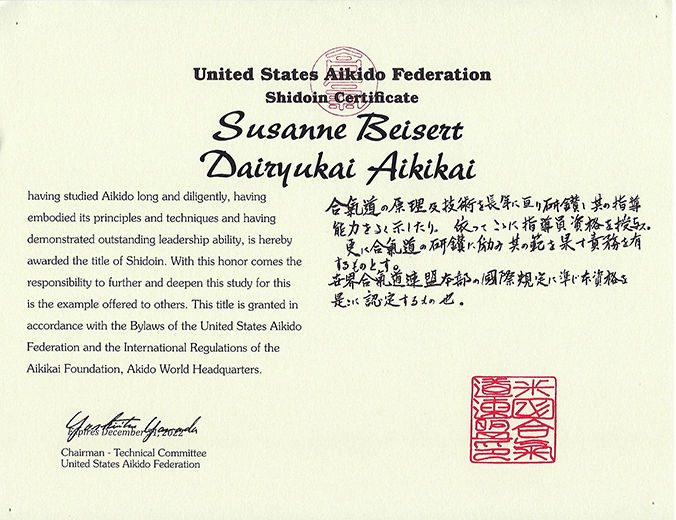 United States Aikido Federation
Shidoin Certificate
Susanne Beisert
Dairyukai Aikikai
having studied Aikido long and diligently, having
embodied its principles and techniques and having
demonstrated outstanding leadership ability, is hereby
awarded the title of Shidoin. With this honor comes the
responsibility to further and deepen this study for this
is the example offered to others. This title is granted in
accordance with the Bylaws of the United States Aikido
Federation and the International Regulations of the
Aikikai Foundation, Akido World Headquarters.
合氣道の原理及技術を長年に亘り研鑽し其の指導
能力をよく示したり。依ってここに指導員資格を授与す。
更に合氣道の研鑽に励み其の範を果す責務を有
するものとす。
世界合氣道連盟本部の國際規定に準じ本資格を
是に認定するもの也。
米國合氣
道連盟印
Yoshimitsu Yamada
Expires December 31, 2022
Chairman - Technical Committee
United States Aikido Federation